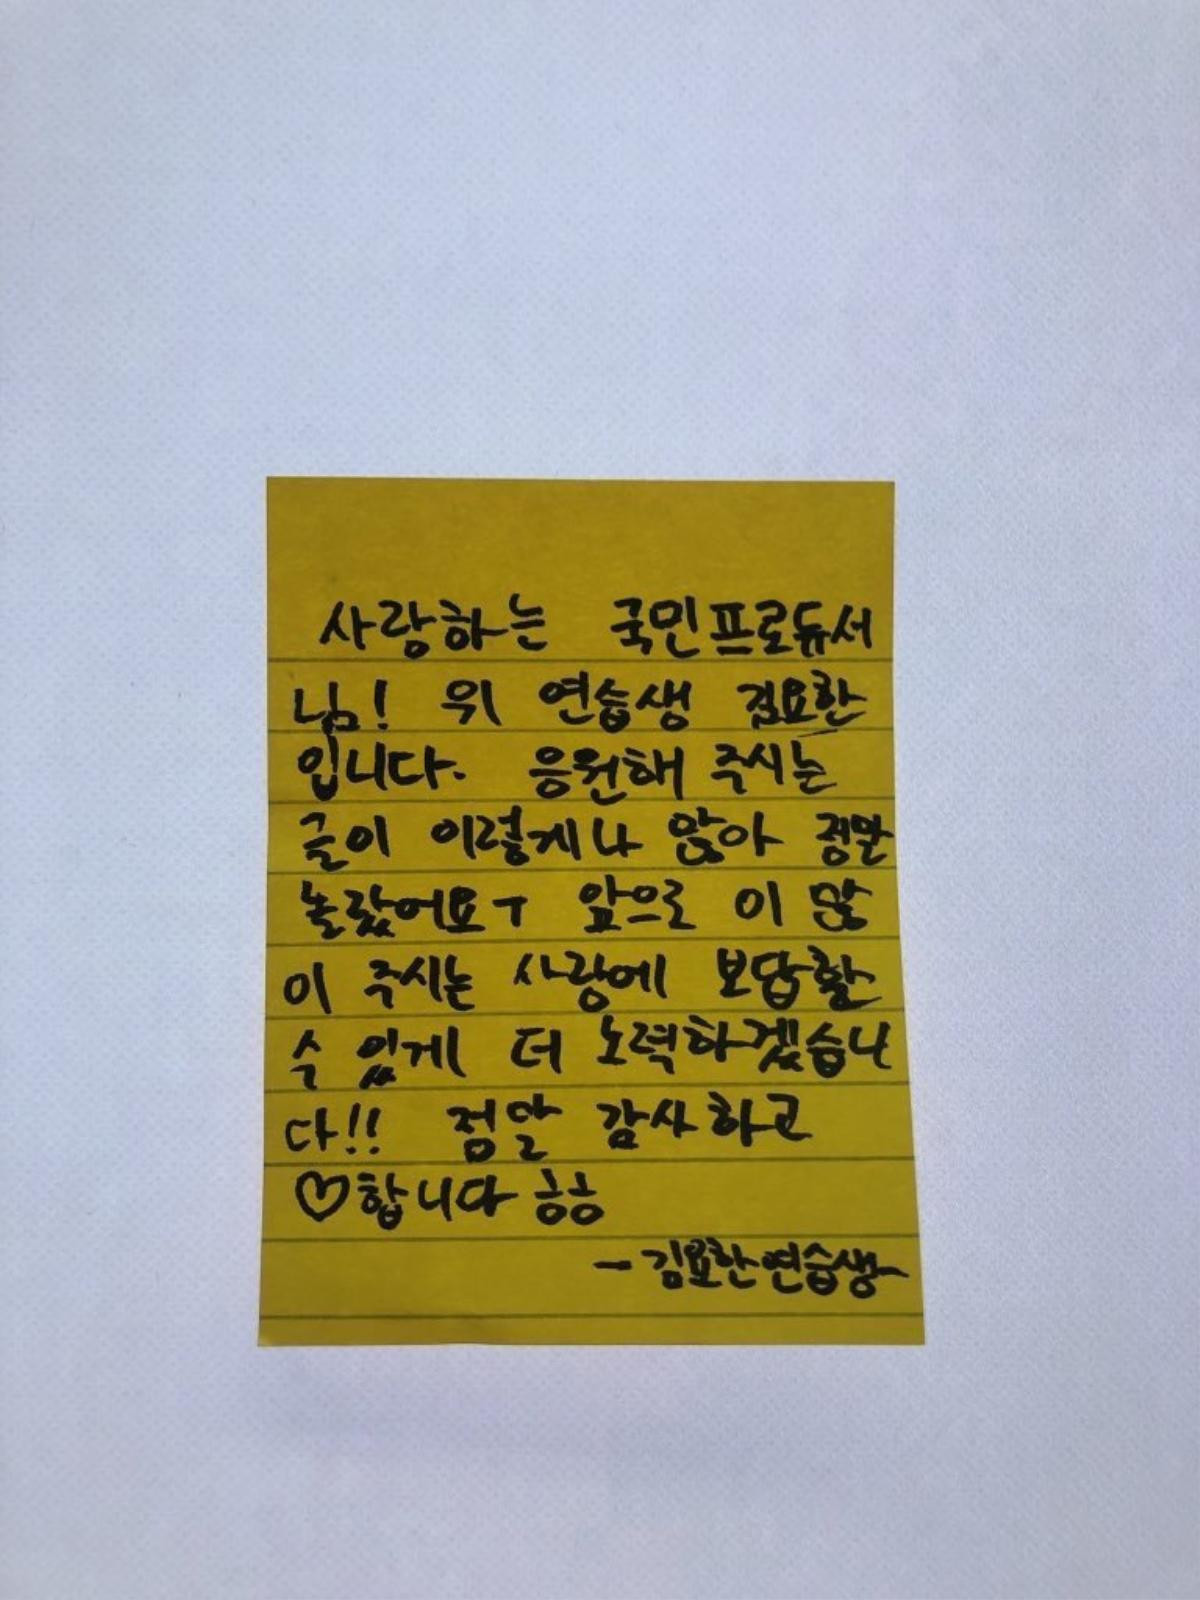 사랑하는 국민프로듀서
님! 위 연습생 김요한
입니다. 응원해 주시는
글이 이렇게나 많아 정말
놀랐어요ㅜ 앞으로 이 많
이 주시는 사랑에 보답할
수 있게 더 노력하겠습니
다!! 정말 감사하고
♡합니다 ㅎㅎ
- 김요한연습생-